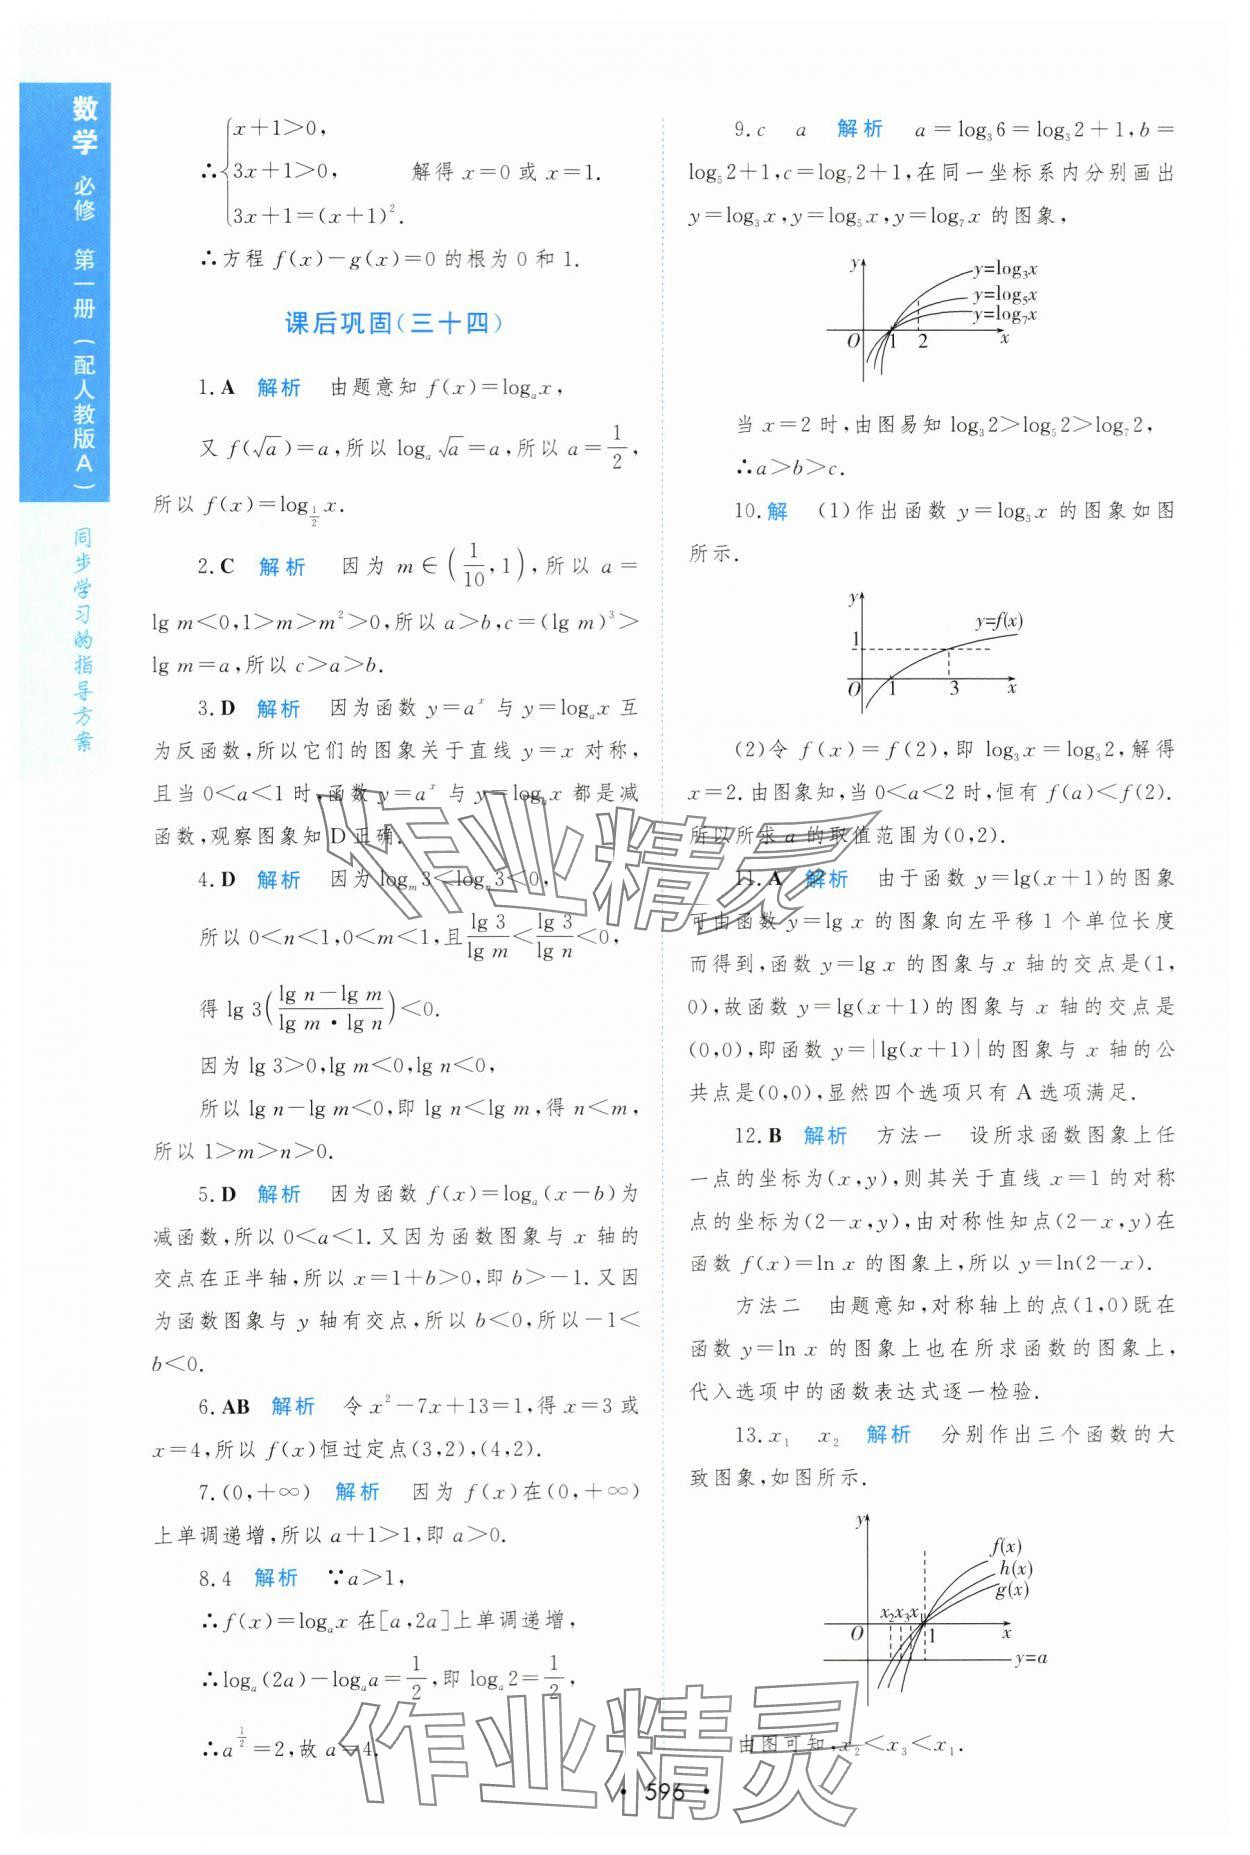 数学 必修 第一册（配人教版A）
同步学习的指导方案
∴{x+1>0,
3x+1>0, 解得 x=0 或 x=1.
3x+1=(x+1)².
∴方程 f(x)-g(x)=0 的根为 0 和 1.
课后巩固(三十四)
1.A 解析 由题意知 f(x)=logₐx,
又 f(√a)=a,所以 logₐ√a=a,所以 a=1/2,
所以 f(x)=log_{1/2}x.
2.C 解析 因为 m∈(1/10,1),所以 a=
lg m<0,1>m>m²>0,所以 a>b,c=(lg m)³>
lg m=a,所以 c>a>b.
3.D 解析 因为函数 y=aˣ 与 y=logₐx 互
为反函数,所以它们的图象关于直线 y=x 对称,
且当 0<a<1 时,函数 y=aˣ 与 y=logₐx 都是减
函数,观察图象知 D 正确.
4.D 解析 因为 logₘ3<logₙ3<0,
所以 0<n<1,0<m<1,且 lg 3/lg m<lg 3/lg n<0,
得 lg 3((lg n-lg m)/(lg m·lg n))<0.
因为 lg 3>0,lg m<0,lg n<0,
所以 lg n-lg m<0,即 lg n<lg m,得 n<m,
所以 1>m>n>0.
5.D 解析 因为函数 f(x)=logₐ(x-b)为
减函数,所以 0<a<1.又因为函数图象与 x 轴的
交点在正半轴,所以 x=1+b>0,即 b>-1.又因
为函数图象与 y 轴有交点,所以 b<0,所以-1<
b<0.
6.AB 解析 令 x²-7x+13=1,得 x=3 或
x=4,所以 f(x)恒过定点(3,2),(4,2).
7.(0,+∞) 解析 因为 f(x)在(0,+∞)
上单调递增,所以 a+1>1,即 a>0.
8.4 解析 ∵a>1,
∴f(x)=logₐx 在[a,2a]上单调递增,
∴logₐ(2a)-logₐa=1/2,即 logₐ2=1/2,
∴a^{1/2}=2,故 a=4.
9.c a 解析 a=log₃6=log₃2+1,b=
log₅2+1,c=log₇2+1,在同一坐标系内分别画出
y=log₃x,y=log₅x,y=log₇x 的图象,
y
y=log₃x
y=log₅x
y=log₇x
O 1 2 x
当 x=2 时,由图易知 log₃2>log₅2>log₇2,
∴a>b>c.
10.解 (1)作出函数 y=log₃x 的图象如图
所示.
y
y=f(x)
1
O 1 3 x
(2)令 f(x)=f(2),即 log₃x=log₃2,解得
x=2.由图象知,当 0<a<2 时,恒有 f(a)<f(2).
所以所求 a 的取值范围为(0,2).
11.A 解析 由于函数 y=lg(x+1)的图象
可由函数 y=lg x 的图象向左平移 1 个单位长度
而得到,函数 y=lg x 的图象与 x 轴的交点是(1,
0),故函数 y=lg(x+1)的图象与 x 轴的交点是
(0,0),即函数 y=|lg(x+1)|的图象与 x 轴的公
共点是(0,0),显然四个选项只有 A 选项满足.
12.B 解析 方法一 设所求函数图象上任
一点的坐标为(x,y),则其关于直线 x=1 的对称
点的坐标为(2-x,y),由对称性知点(2-x,y)在
函数 f(x)=ln x 的图象上,所以 y=ln(2-x).
方法二 由题意知,对称轴上的点(1,0)既在
函数 y=ln x 的图象上也在所求函数的图象上,
代入选项中的函数表达式逐一检验.
13.x₁ x₂ 解析 分别作出三个函数的大
致图象,如图所示.
y
f(x)
h(x)
g(x)
x₂x₃x₁
O 1 x
y=a
由图可知,x₂<x₃<x₁.
作业精灵
作业精灵
·596·